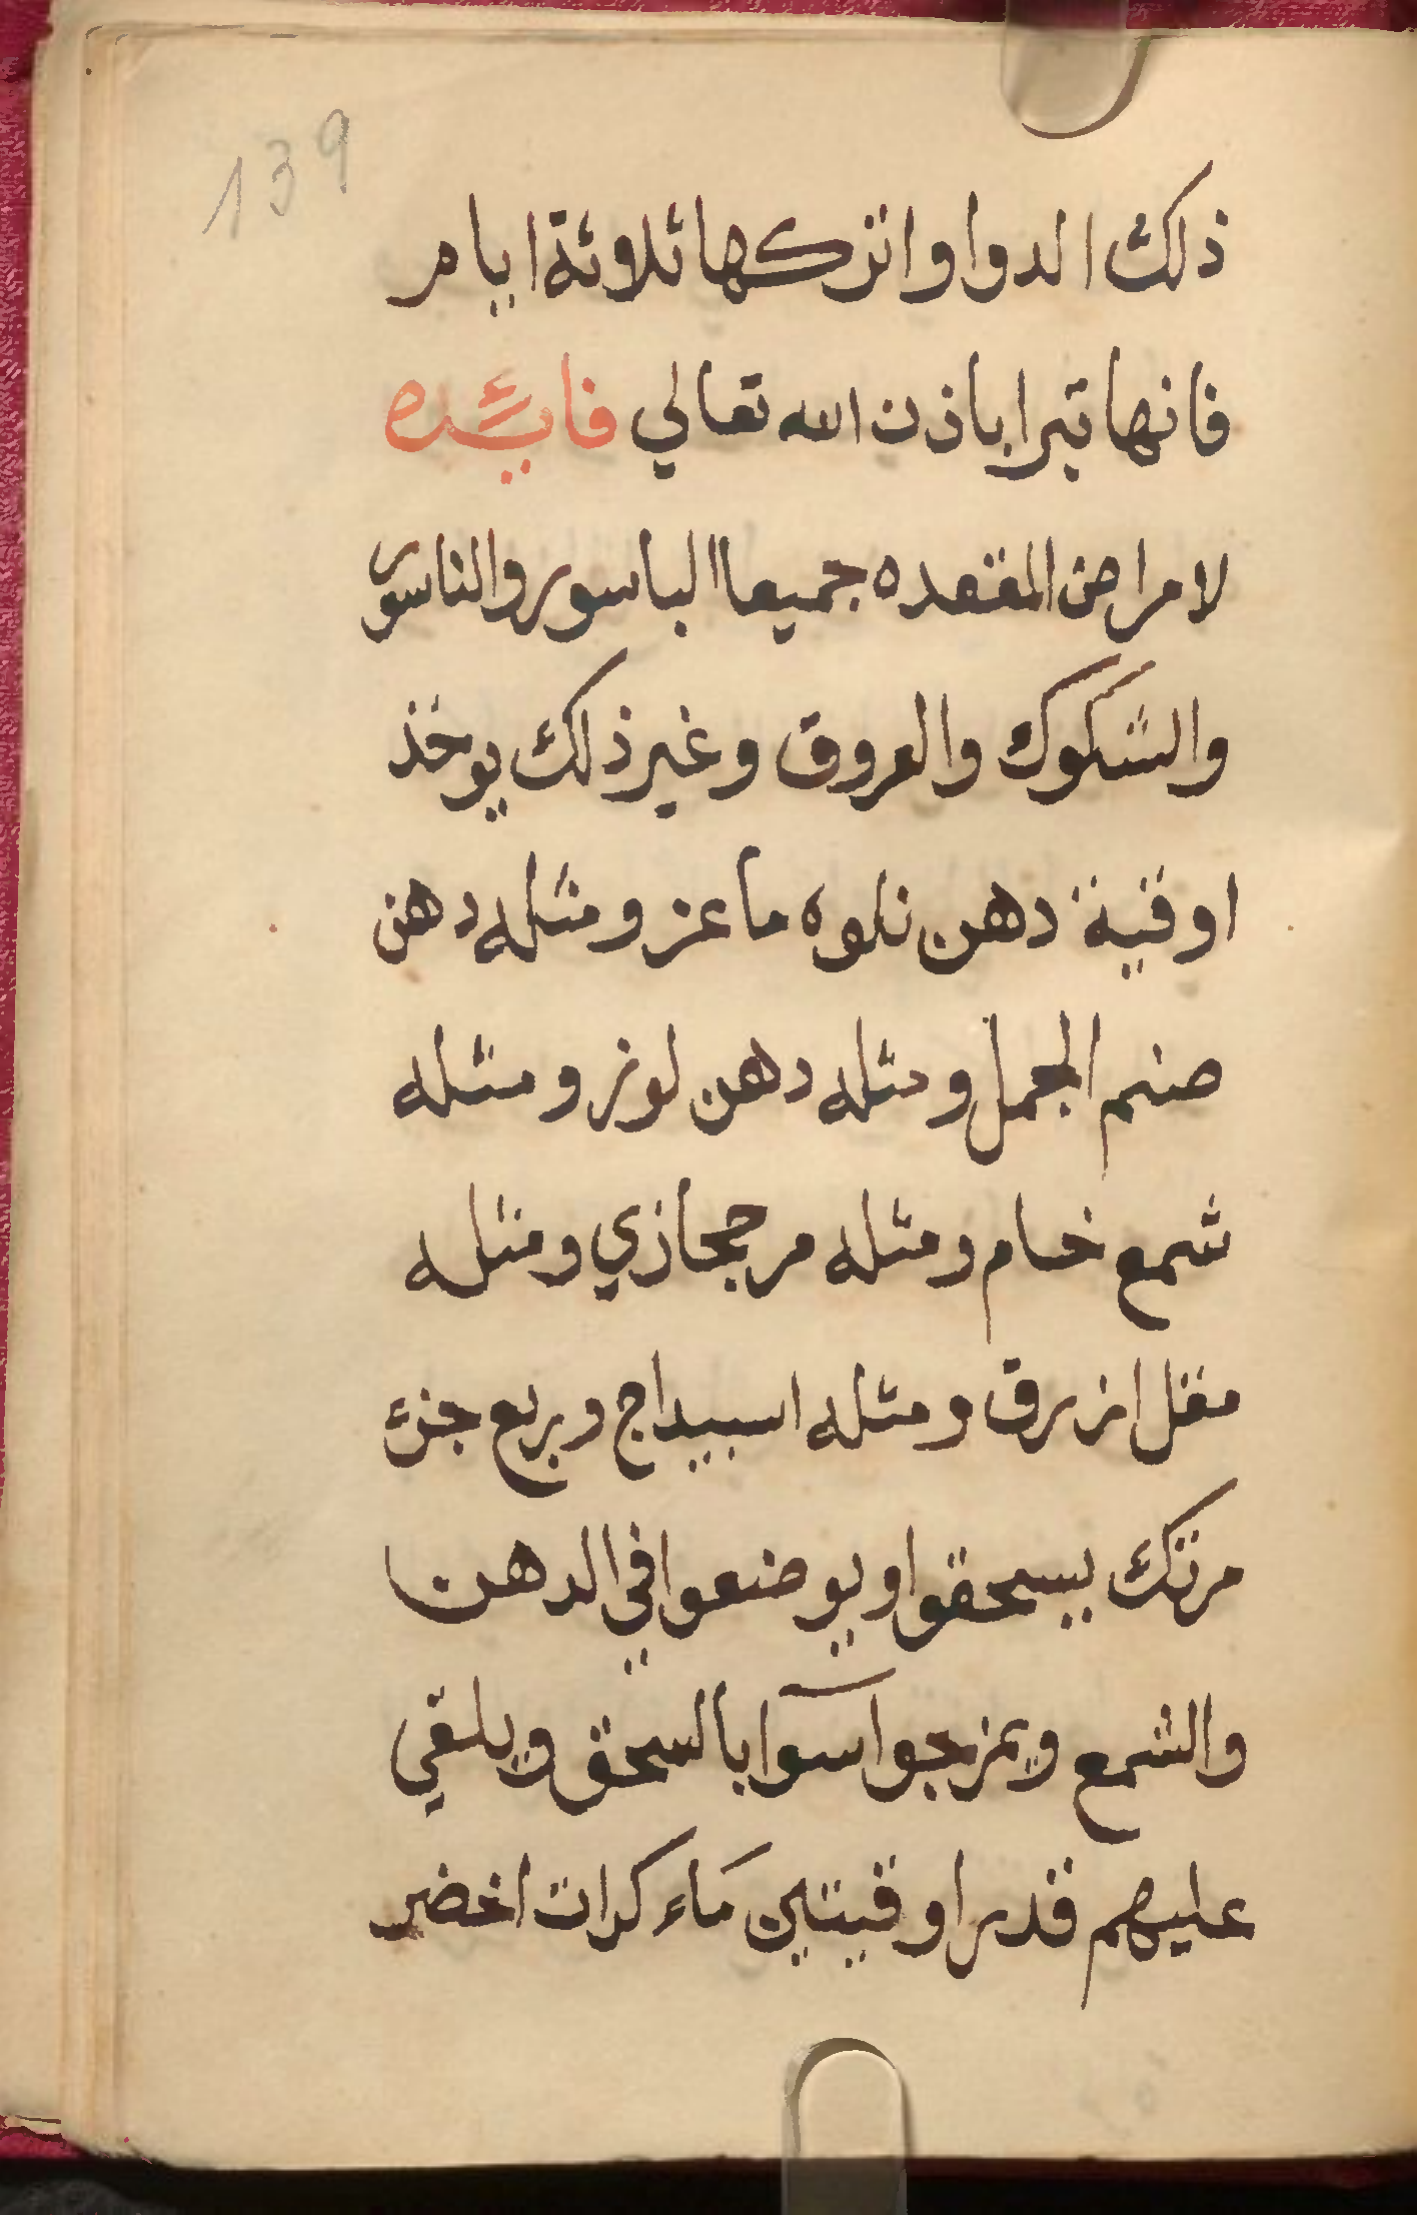 139
ذلك الدوا واتركها ثلاوثة ايام
فانها تبرا باذن الله تعالي فايئده
لامراض المقعده جميعا الباسور والناسور
والشكوك والعروق وغير ذلك يوخذ
اوقية دهن نلوه ماعز ومثله دهن
صنم الجمل ومثله دهن لوز ومثله
شمع خام ومثله مر حجازي ومثله
مقل ازرق ومثله اسبيداج وربع جزء
مرتك يسحقوا ويوضعوا في الدهن
والشمع ويمزجوا سوآ بالسحق ويلقي
عليهم قدر اوقيتين ماء كرات اخضر